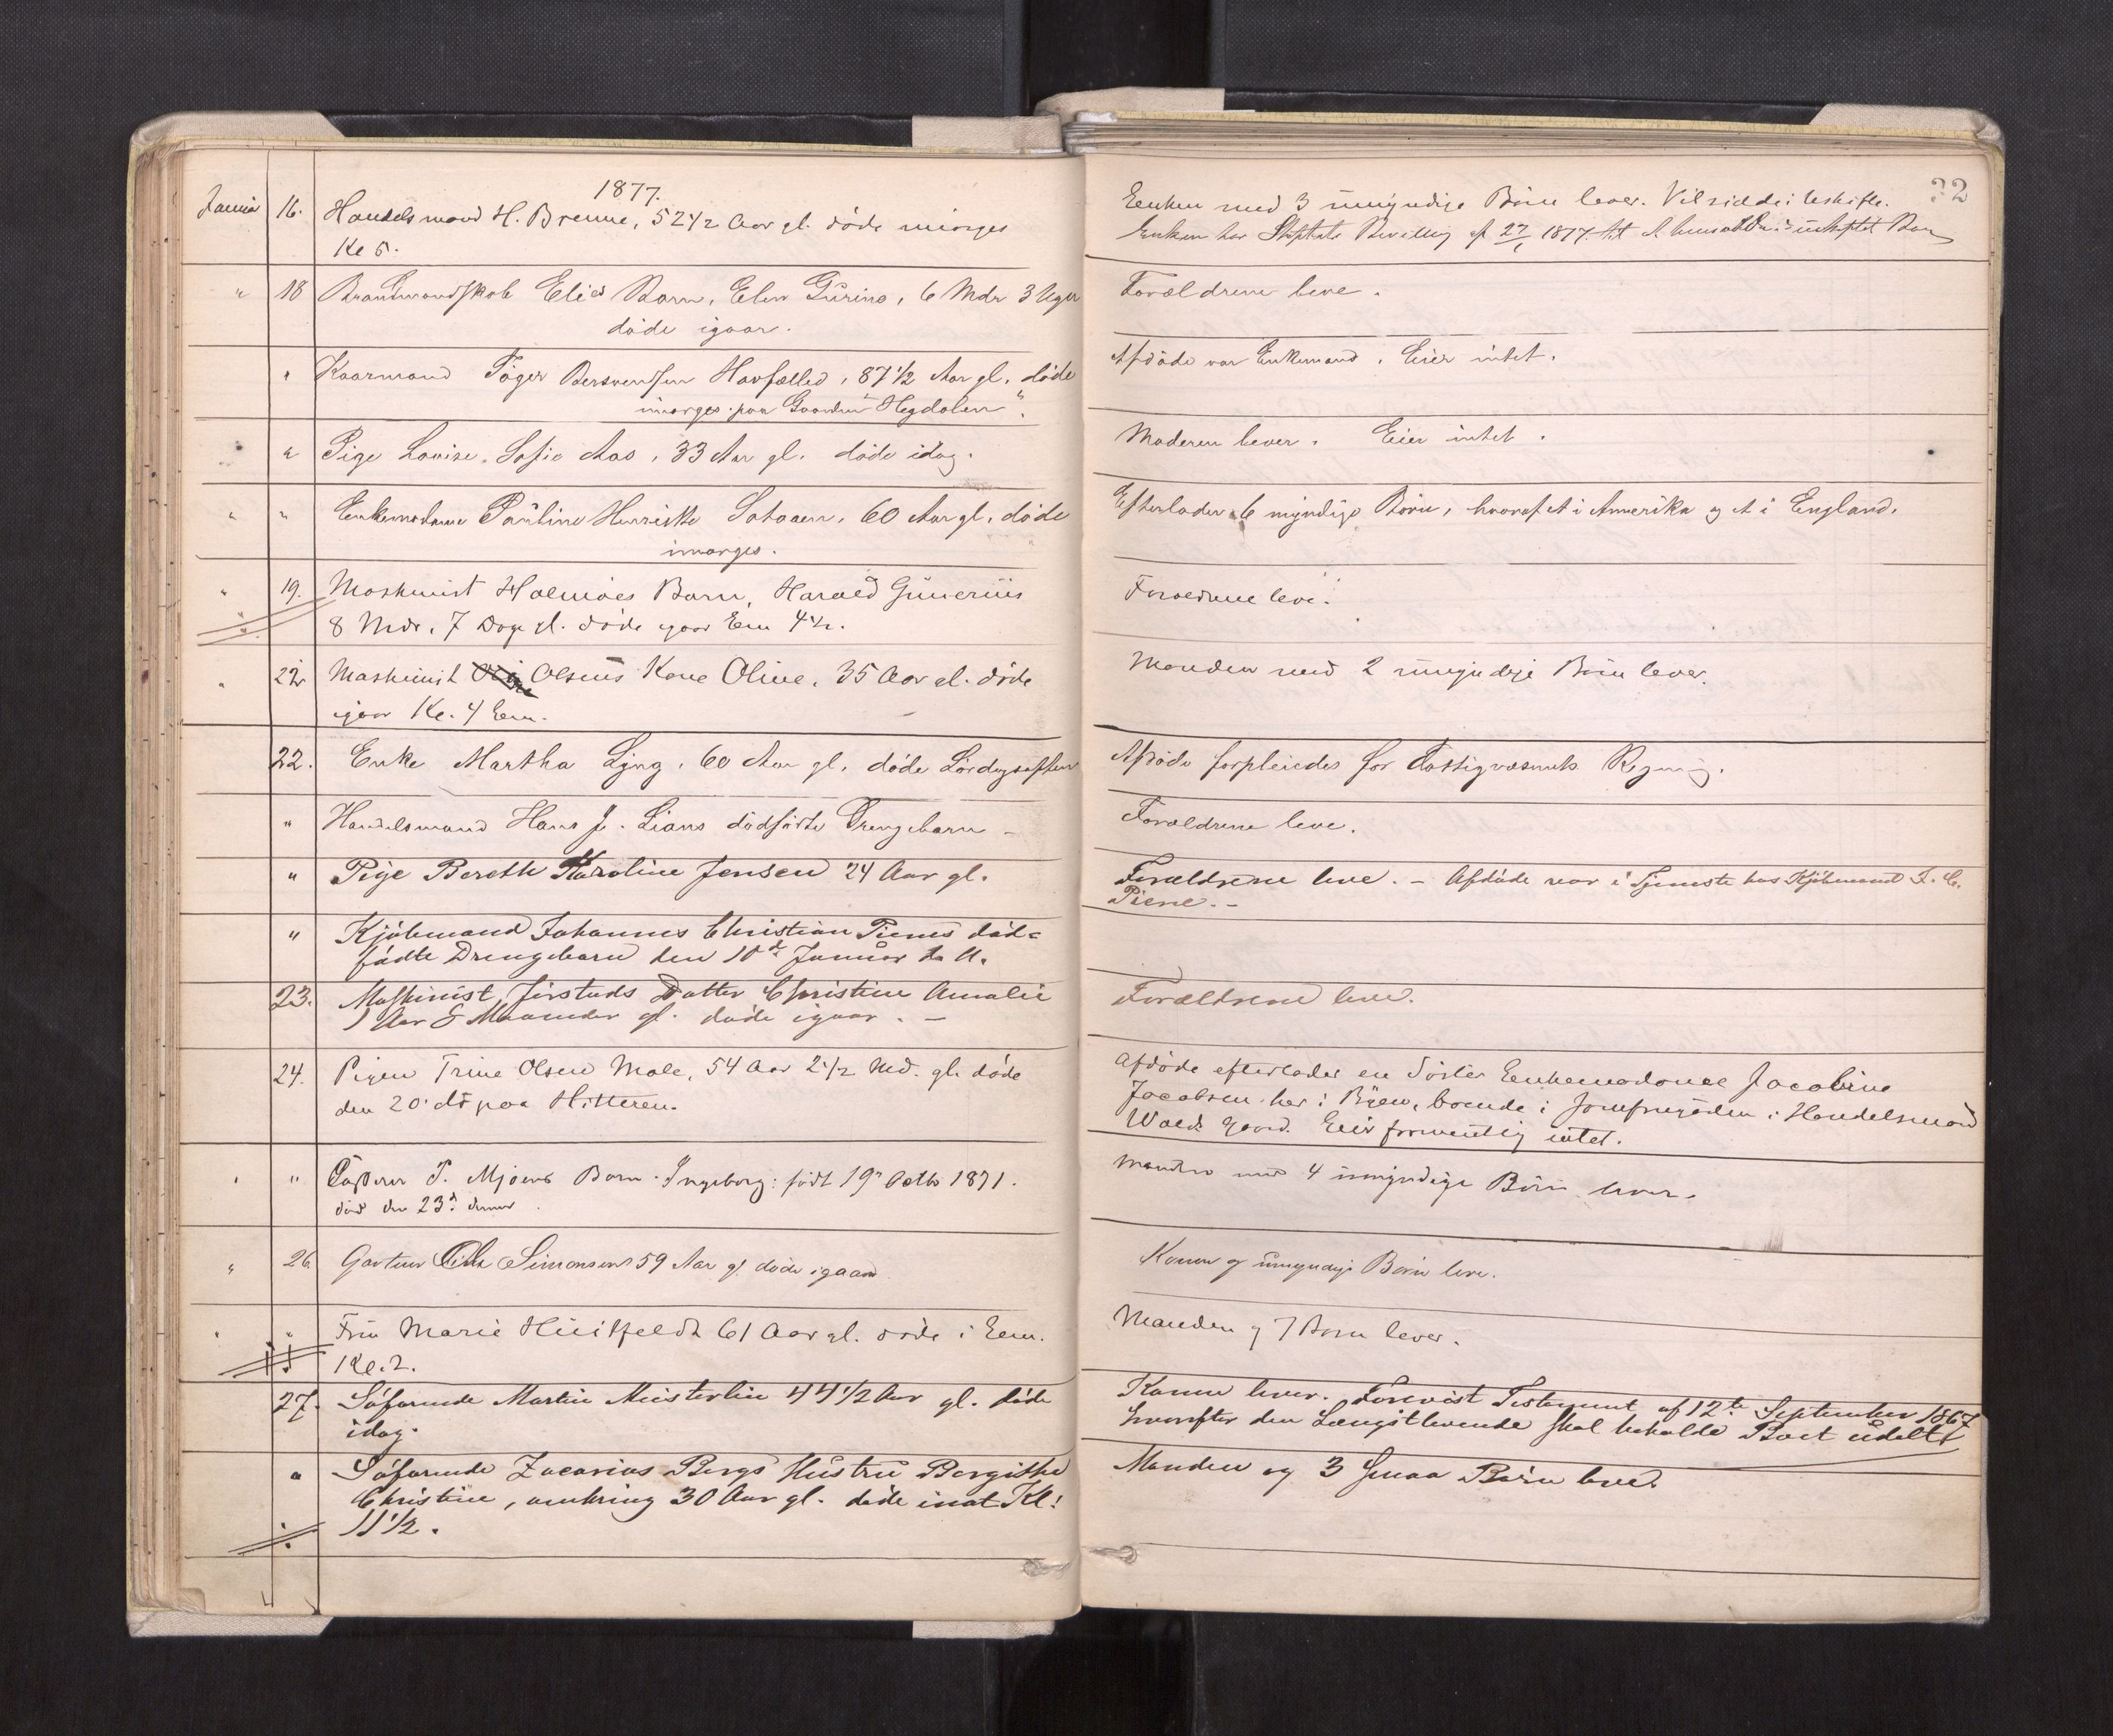 1877.
Januar 16. Handelsmand H. Brenne, 52 1/2 Aar gl. døde imorges
Kl 5.
" 18 Brandmandskab Elies Barn, Elen Gurine, 6 Mdr 3 Uger
døde igaar.
" Kaarmand Tøger Bersvendsen Havfælled, 87 1/2 Aar gl. døde
imorges paa Gaarden "Hegdalen".
" Pige Lovise Sofie Aas, 33 Aar gl. døde idag.
" " Enkemadame Pauline Henrikke 60 Aar gl. døde
imorges.
" 19. Maskinist Holmøes Barn, Harald Gunerius
8 Mdr. 7 Dage gl. døde igaar Em 4 1/2.
" 22 Maskinist Olsens Kone Oline, 35 Aar gl. døde
igaar Kl. 4 Em.
22. Enke Martha Lyng, 60 Aar gl. døde Lørdagsaften
" Handelsmand Hans J. Lians dødfødte Drengebarn -
" Pige Bereth Karoline Jensen 24 Aar gl.
" Kjøbmand Johannes Christian Pienes død=
fødte Drengebarn den 10d Januar d. A.
23. Maskinist Jørstads Datter Christine Amalie
1 Aar 8 Maaneder gl. døde igaar. -
24. Pigen Trine Olsen Male, 54 Aar 2 1/2 Md. gl. døde
den 20' ds paa Hitteren.
" " P. Mjøens Barn Ingeborg: født 19' Octb 1871.
død den 23d dennes
" 26 Gartner Ole Simonsen 59 Aar gl døde igaar
" " Fru Marie Huitfeldt 61 Aar gl. døde i Em.
Kl. 2.
27. Søfarende Martin Meisterlin 44 1/2 Aar gl. døde
idag.
" Søfarende Zacarias Bergs Hustru Bergithe
Christine, omkring 30 Aar gl. døde inat Kl:
11 1/2.
32
Enken med 3 umyndige Børn lever. Vil sidde i uskifte.
Enken har Bevilling af 27/1 1877 til
Forældrene leve.
Afdøde var Enkemand. Eier intet.
Moderen lever. Eier intet.
Efterlader 6 myndige Børn, hvoraf et i Amerika og et i England.
Forældrene leve.
Manden med 2 umyndige Børn lever.
Afdøde forpleiedes for Fattigvæsenets Regning.
Forældrene leve.
Forældrene leve. - Afdøde var i Tjeneste hos Kjøbmand I. C.
Piene. -
Forældrene leve.
Afdøde efterlader en Søster Enkemadame Jacobine
Jacobsen her i Byen, boende i Jomfrugaden i Handelsmand
Wolds Gaard. Eier formentlig intet.
Manden med 4 umyndige Børn lever.
Konen og umyndige Børn leve.
Manden og 7 Børn lever.
Konen lever. Forevist Testament af 12te September 1867
hvorefter den Længstlevende skal beholde Boet udelt
Manden og 3 smaa Børn leve.